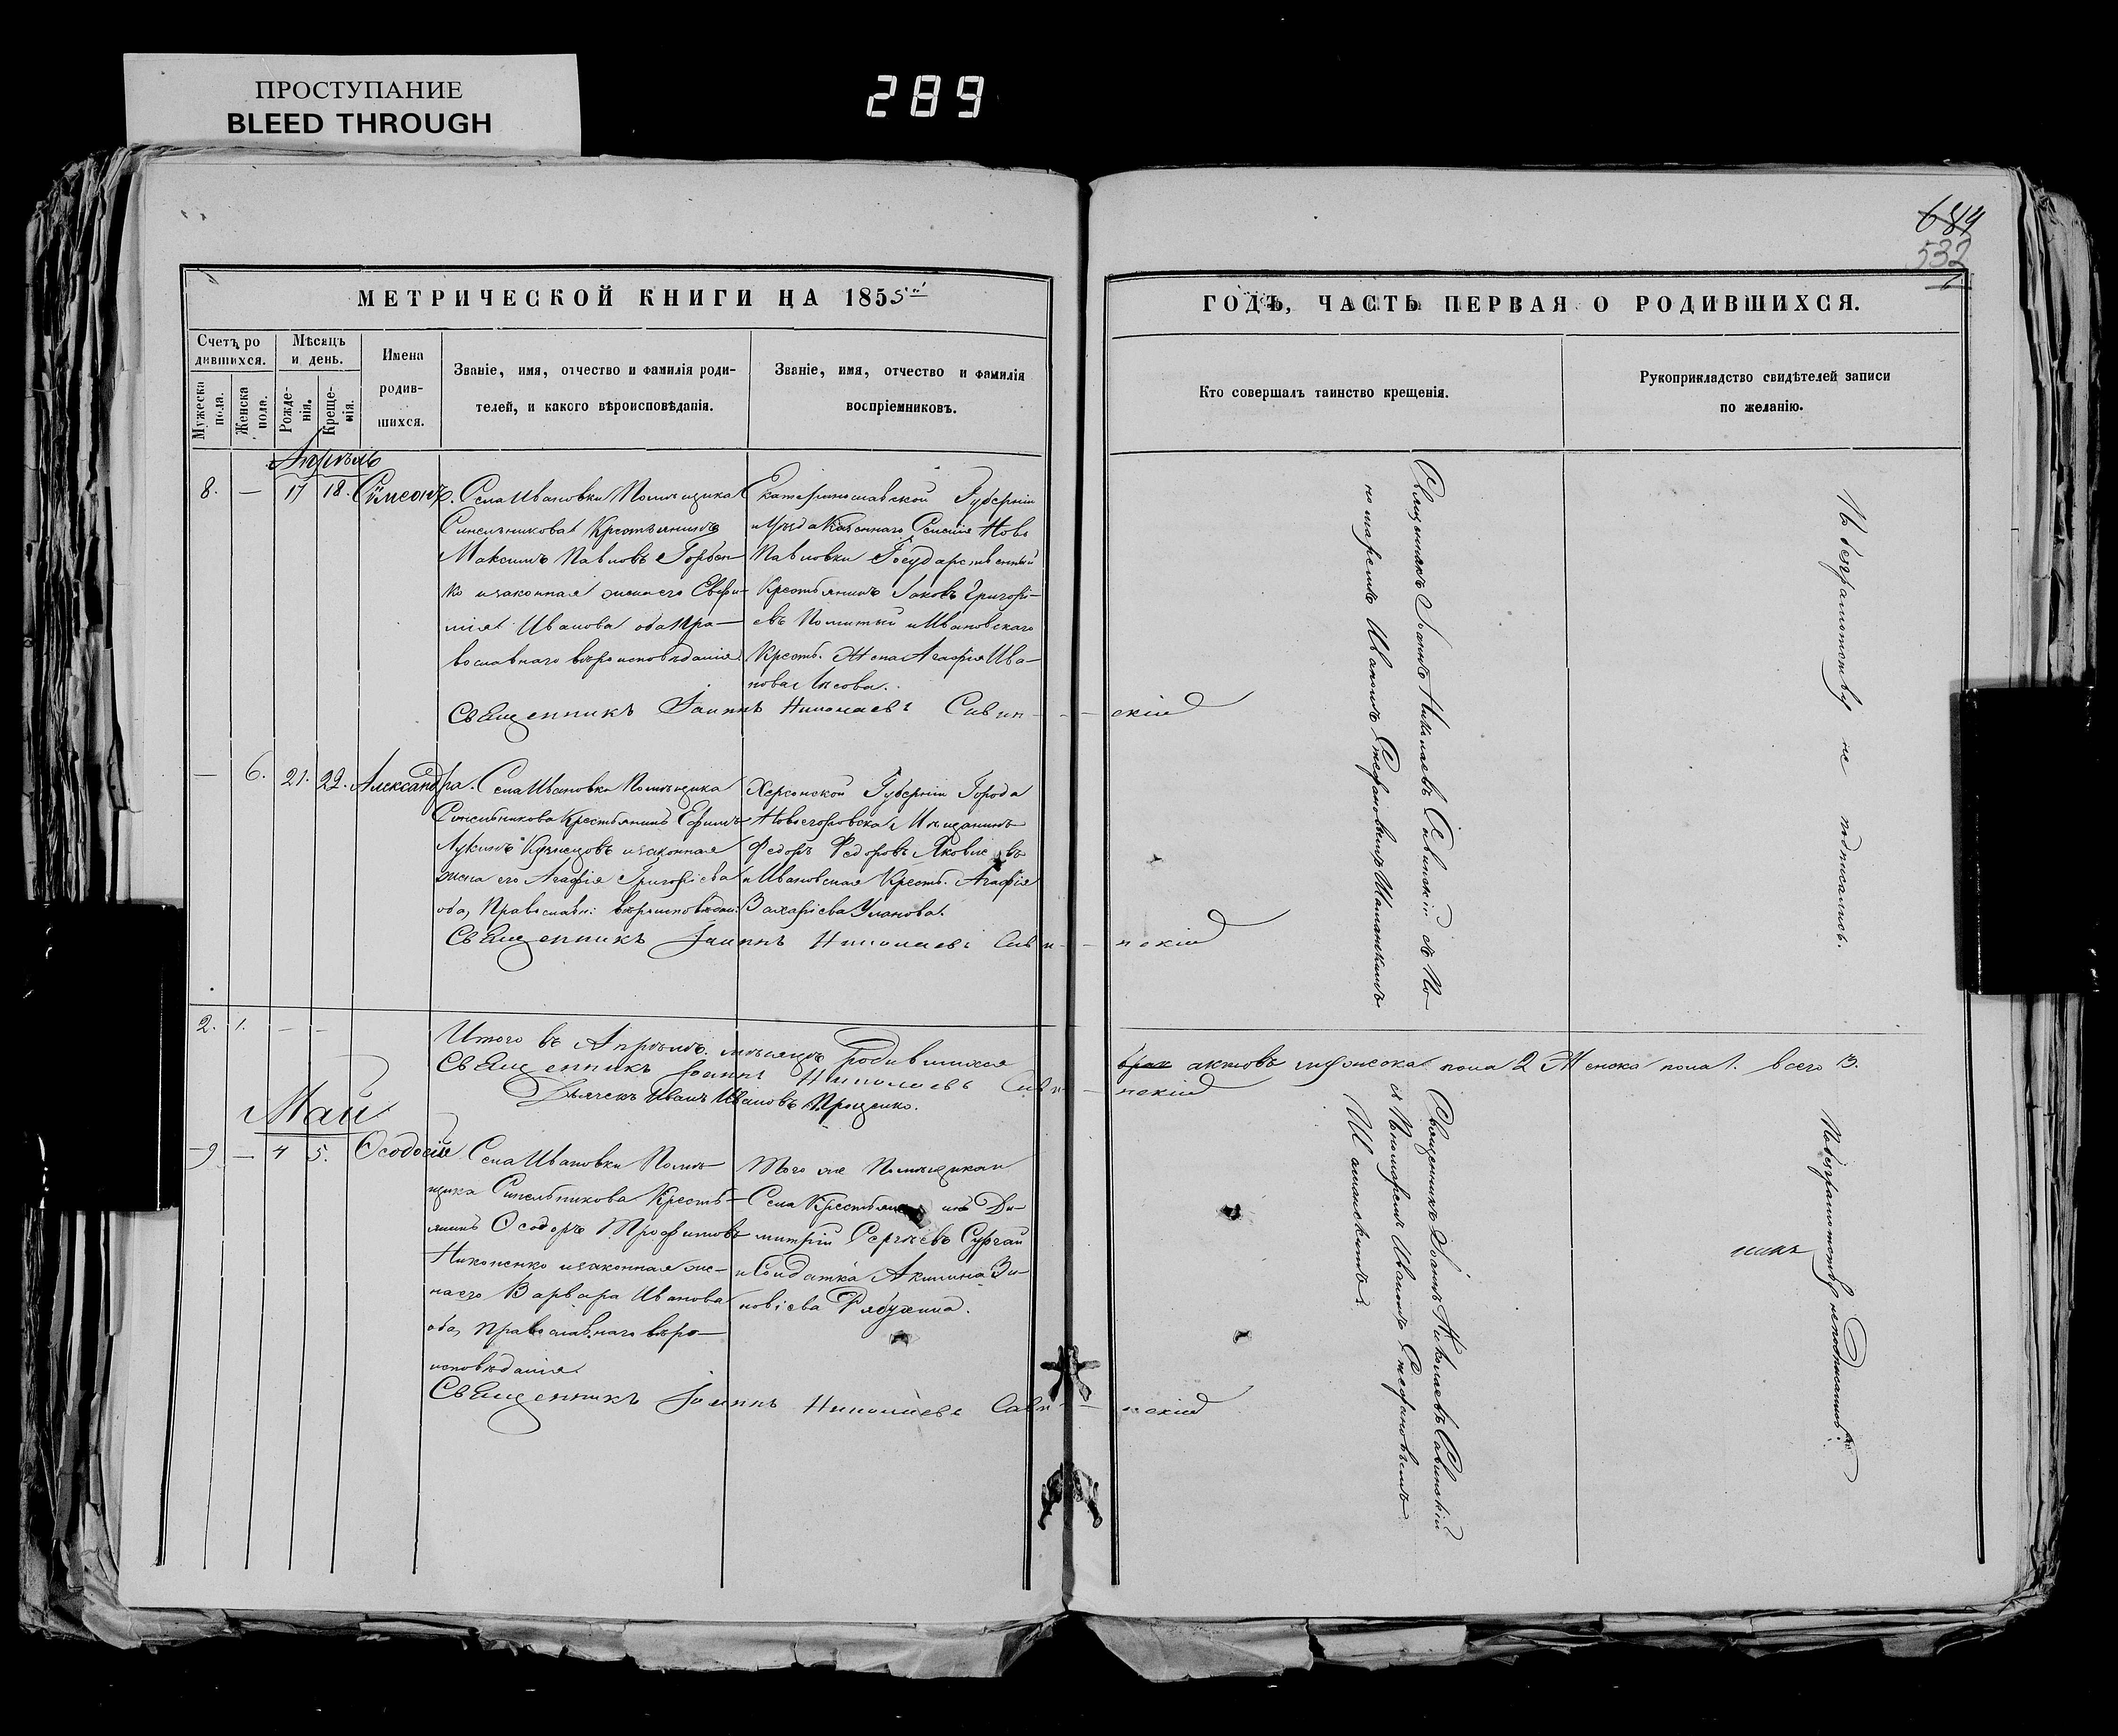 ПРОСТУПАНИЕ
BLEED THROUGH
289
684
532
МЕТРИЧЕСКОЙ КНИГИ НА 1855
ГОДЪ, ЧАСТЬ ПЕРВАЯ О РОДИВШИХСЯ.
Счетъ ро
дившихся.
Мужеска
пола.
Женска
пола.
Мѣсяцъ
и день.
Рожде-
нія.
Креще-
нія.
Имена
родив-
шихся.
Званіе, имя, отчество и фамилія роди-
телей, и какого вѣроисповѣданія.
Званіе, имя, отчество и фамилія
воспріемниковъ.
Кто совершалъ таинство крещенія.
Рукоприкладство свидѣтелей записи
по желанію.
Апрѣль
8. — 17 18. Сѵмеонъ.
Села Ивановки Помѣщика
Синельникова Крестьянинъ
Максимъ Павловъ Горбен-
ко и законная жена его Евфи-
мія Иванова оба Пра-
вославнаго вѣроисповѣданія
Екатеринославской Губерніи
и Уѣзда Казеннаго Селенія Ново
Павловки Государственный
Крестьянинъ Іаковъ Григорі-
евъ и Ивановскаго
Крест. Жена Агафія Ива-
нова
Священникъ Іоаннъ Николаевъ Савин-
скій
Священникъ Іоаннъ Николаевъ Савинскій съ По-
номаремъ Иваномъ Стефановымъ
По безграмотству не подписались.
— 6. 21. 22. Александра.
Села Ивановки Помѣщика
Синельникова Крестьянинъ Ефимъ
Лукинъ Кузнецовъ и законная
жена его Агафія Григоріева
оба Православн: вѣроисповѣдан:
Херсонской Губерніи Города
Новогеоргіевска Мѣщанинъ
Федоръ Федоровъ Яковлевъ
и Ивановская Крест. Агафія
Захаріева Уманова.
Священникъ Іоаннъ Николаевъ Сави-
нскій
2. 1. — —
Итого въ Апрѣлѣ мѣсяцѣ родившихся
актовъ мужеска пола 2 Женска пола 1. всего 3.
Священникъ Іоаннъ Николаевъ Сави-
нскій
Дьячекъ Иванъ Ивановъ Проценко.
Май
9 — 4 5. Ѳеодосій
Села Ивановки Помѣ-
щика Синельникова Кресть-
янинъ Ѳеодоръ Трофимовъ
Никоненко и законная же-
на его Варвара Иванова
оба православнаго вѣро-
исповѣданія
Того же Помѣщика и
Села Крестьянинъ Ди-
митрій Сергѣевъ Сургай
и Солдатка Акилина Зи-
новіева Рябухина.
Священникъ Іоаннъ Николаевъ Сави-
нскій
Священникъ Іоаннъ Николаевъ Савинскій
съ Пономаремъ Иваномъ Стефановымъ
По безграмотству неподписались.